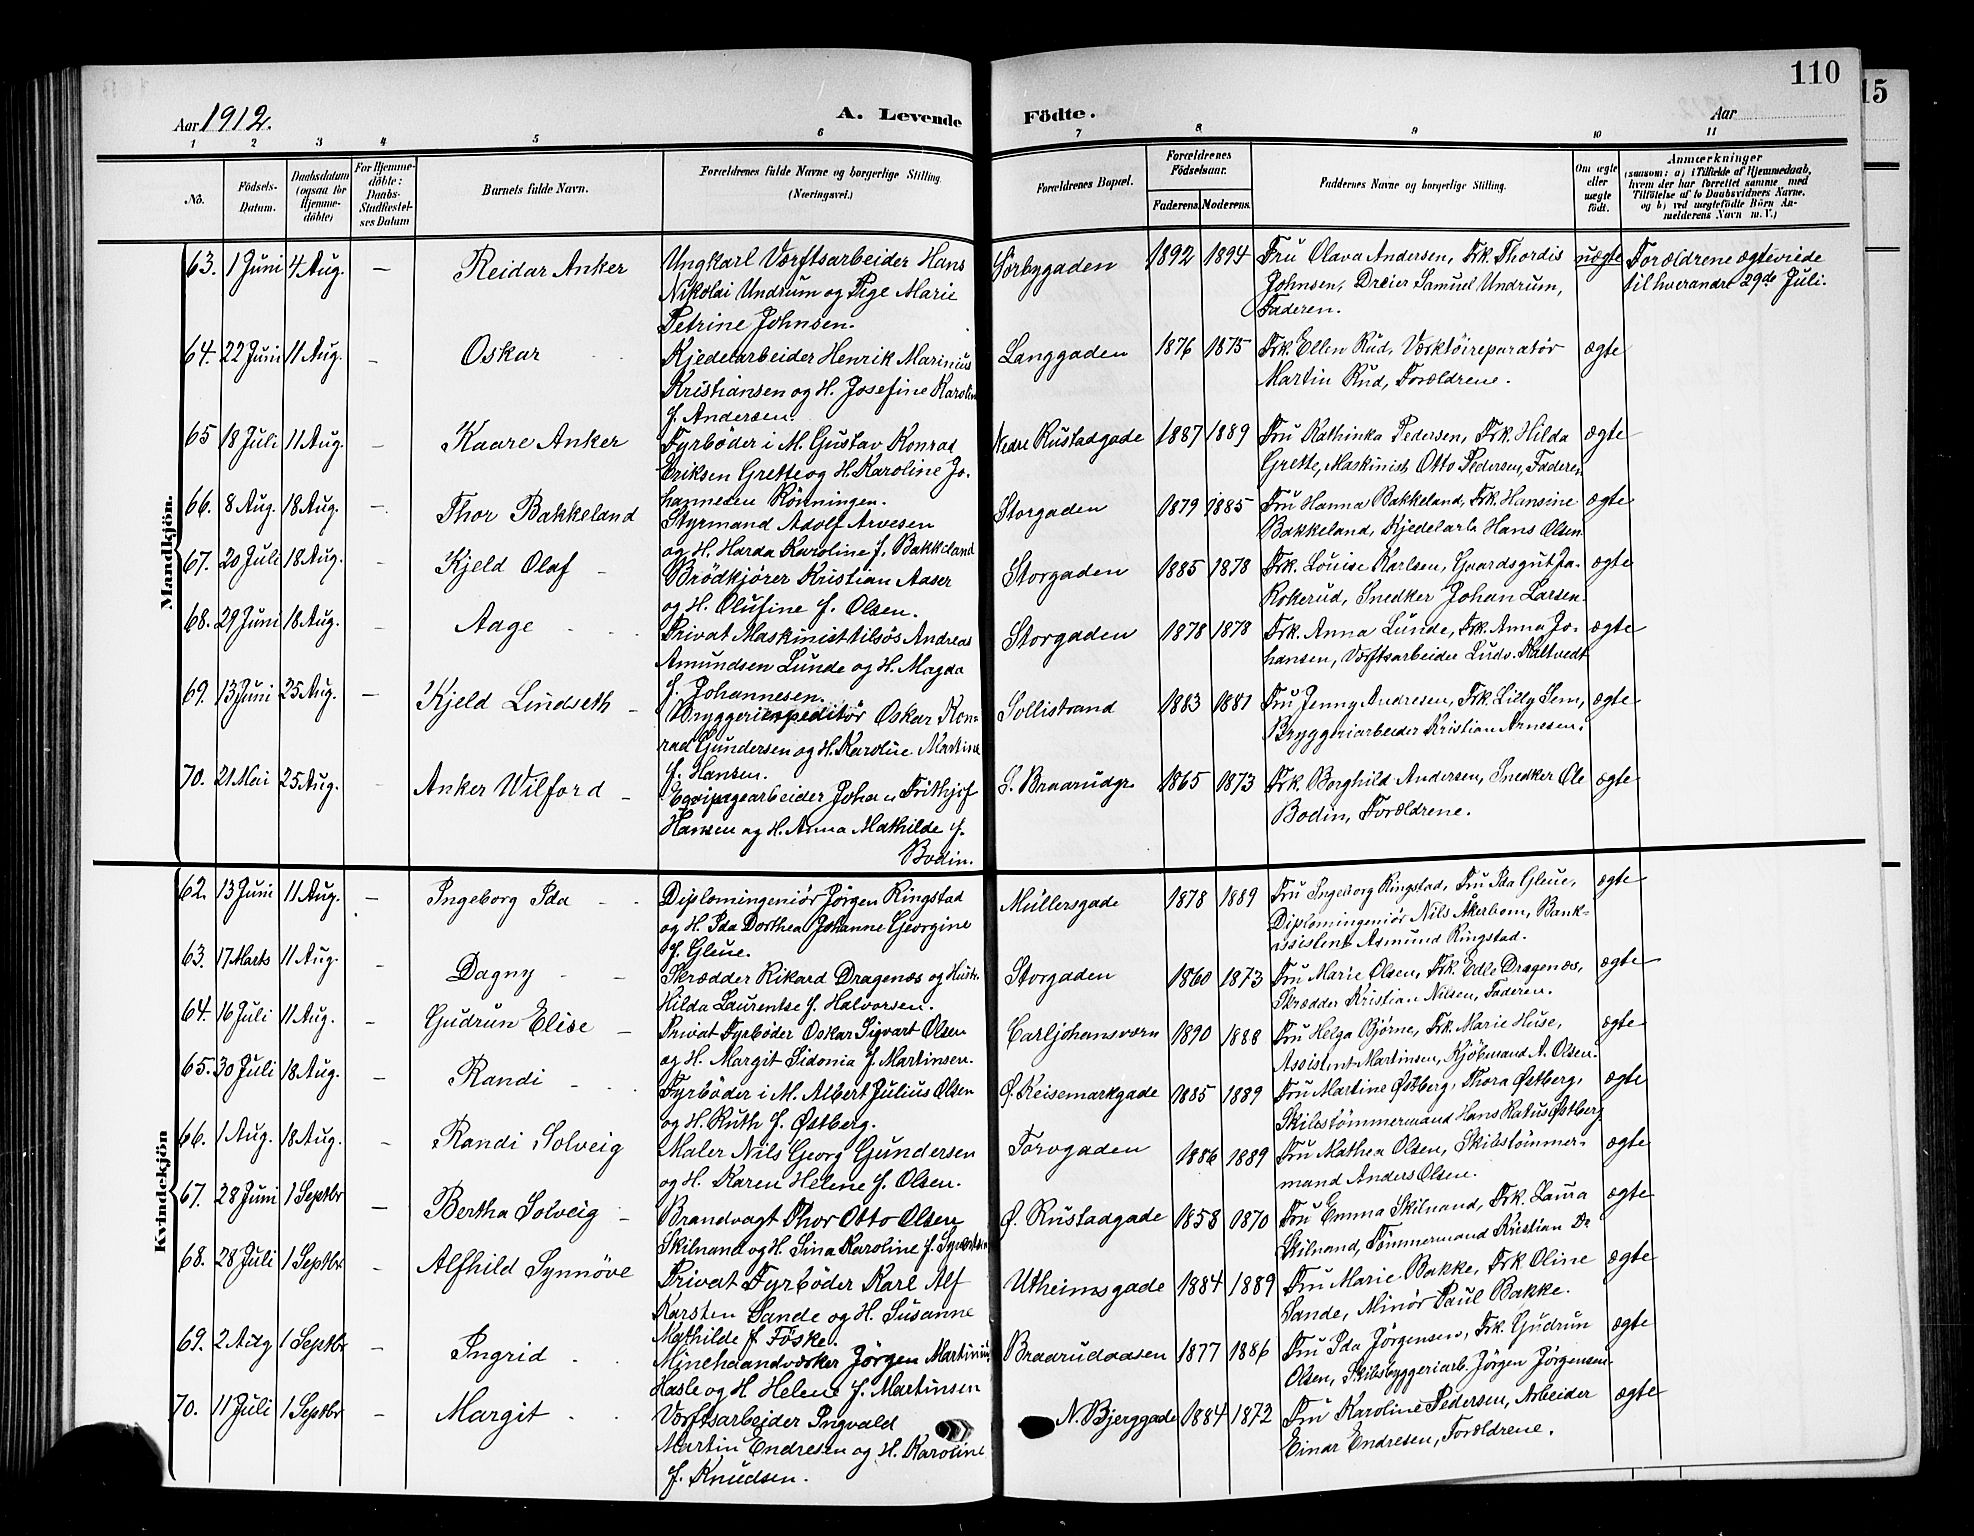 110
15
Aar 1912.
A. Levende Födte.
Aar
1 2 3 4 5 6 7 8 9 10 11
No.
Födsels-
Datum.
Daabsdatum
(ogsaa for
Hjemme-
döbte)
For Hjemme-
döbte:
Daabs-
Stadfæstel-
ses Datum
Barnets fulde Navn.
Forældrenes fulde Navne og borgerlige Stilling
(Næringsvei.)
Forældrenes Bopæl.
Forældrenes
Födselsaar.
Faderens. Moderens.
Faddernes Navne og borgerlige Stilling.
Om ægte
eller
uægte
født.
Anmærkninger
(saasom: a) i Tilfælde af Hjemmedaab,
hvem der har forrettet samme med
Tilföielse af to Daabsvidners Navne.
og b) ved uægtefödte Börn An-
melderens Navn m. V.)
Mandkjön.
63. 1 Juni 4 Aug. — Reidar Anker Ungkarl Værftsarbeider Hans Sørbygaden 1892 1894 Fru Olava Andersen, Frk. Thordis uægte Forældrene ægteviede
Nikolai Undrum og Pige Marie Johnsen, Dreier Samuel Undrum, til hverandre 29de Juli.
Petrine Johnsen. Faderen.
64. 22 Juni 11 Aug. — Oskar Kjedelarbeider Henrik Marinius Langgaden 1876 1875 Frk. Ellen Rud, Værktöireparatör ægte
Kristiansen og H. Josefine Karolin Martin Rud, Forældrene.
f. Andersen.
65 18 Juli 11 Aug. — Kaare Anker Fyrböder i M. Gustav Konrad Nedre Rustadgade 1887 1889 Fru Kathinka Pedersen, Frk. Hilda ægte
Eriksen Grette og H. Karoline Jo- Grette, Maskinist Otto Pedersen, Faderen
hannedea Rönningen.
66. 8 Aug. 18 Aug. — Thor Bakkeland Styrmand Adolf Arvesen Storgaden 1879 1885 Fru Hanna Bakkeland, Frk. Hansine ægte
og H. Harda Karoline f. Bakkeland Bakkeland, Kjedelarb. Hans Olsen
67. 20 Juli 18 Aug. — Kjeld Olaf Brödkjörer Kristian Aaser Storgaden 1885 1878 Frk. Louise Karlsen, Gaardsgut Ja. ægte
og H. Olufine f. Olsen. Rokerud, Snedker Johan Larsen.
68. 29 Juni 18 Aug. — Aage Privat Maskinist tilsös Andreas Storgaden 1878 1878 Frk. Anna Lunde, Frk. Anna Jo- ægte
Amundsen Lunde og H. Magda hansen, Værftsarbeider Ludv. Haltvedt
f. Johannesen.
69. 13 Juni 25 Aug. — Kjeld Lindseth Bryggeriexpeditör Oskar Kon- Sollistrand 1883 1881 Fru Jenny Andresen, Frk. Lilly Sem, ægte
rad Gundersen og H. Karoline Martine Bryggeriarbeider Kristian Arnesen.
f. Hansen.
70. 21 Mai 25 Aug. — Anker Wilford Eqvipagearbeider Johan Frithjof S. Braarudgt 1865 1873 Frk. Borghild Andersen, Snedker Ole ægte
Hansen og H. Anna Mathilde f. Bodin, Forældrene.
Bodin.
Kvindekjön
62. 13 Juni 11 Aug. — Ingeborg Ida Diplomingeniör Jörgen Ringstad Müllersgade 1878 1889 Fru Ingeborg Ringstad, Fru Ida Gleue, ægte
og H. Ida Dorthea Johanne Georgine Diplomingeniör Nils Åkerbom, Bank-
f. Gleue. assistent Asmund Ringstad.
63. 17 Marts 11 Aug. — Dagny Skrædder Rikard Dragenæs og Hustr. Storgaden 1860 1873 Fru Marie Olsen, Frk. Edle Dragenæs, ægte
Hilda Laurentse f. Halvorsen. Skrædder Kristian Nilsen, Faderen.
64. 16 Juli 11 Aug. — Gudrun Elise Privat Fyrböder Oskar Sigvart Olsen Carljohansværn 1890 1888 Fru Helga Bjørne, Frk. Marie Huse, ægte
og H. Margit Sidonia f. Martinsen. Assistent Martinsen, Kjöbmand A. Olsen.
65. 30 Juli 18 Aug. — Randi Fyrböder i M. Albert Julius Olsen Ø. Keisemarkgade 1885 1889 Fru Martine Østberg, Thora Østberg, ægte
og H. Ruth f. Østberg. Skibstömmermand Hans Ratus Østberg
66. 1 Aug. 18 Aug. — Randi Solveig Maler Nils Georg Gundersen Torvgaden 1886 1889 Fru Mathea Olsen, Skibstömmer- ægte
og H. Karen Helene f. Olsen. mand Anders Olsen.
67. 28 Juni 1 Septbr — Bertha Solveig Brandvagt Thor Otto Olsen Ø. Rustadgade 1858 1870 Fru Emma Skilnand, Frk. Laura ægte
Skilnand og H. Sina Karoline f. Syvertsen Skilnand, Tömmermand Kristian Dr
68. 28 Juli 1 Septbr — Alfhild Synnöve Privat Fyrböder Karl Alf Utheimsgade 1884 1889 Fru Marie Bakke, Frk Oline ægte
Karsten Sande og H. Susanne Sande, Minör Paul Bakke.
Mathilde f. Föske.
69. 2 Aug 1 Septbr — Ingrid Minehaandværker Jörgen Martinius Braarudaasen 1877 1886 Fru Ida Jörgensen, Frk. Gudrun ægte
Hasle og H Helene f. Martinsen Olsen, Skibsbyggeriarb. Jörgen Jörgensen.
70. 11 Juli 1 Septbr — Margit Værftsarbeider Ingvald N. Bjerggade 1884 1872 Fru Karoline Pedersen, Arbeider ægte
Martin Endresen og H. Karoline Einar Endresen, Forældrene.
f. Knudsen.